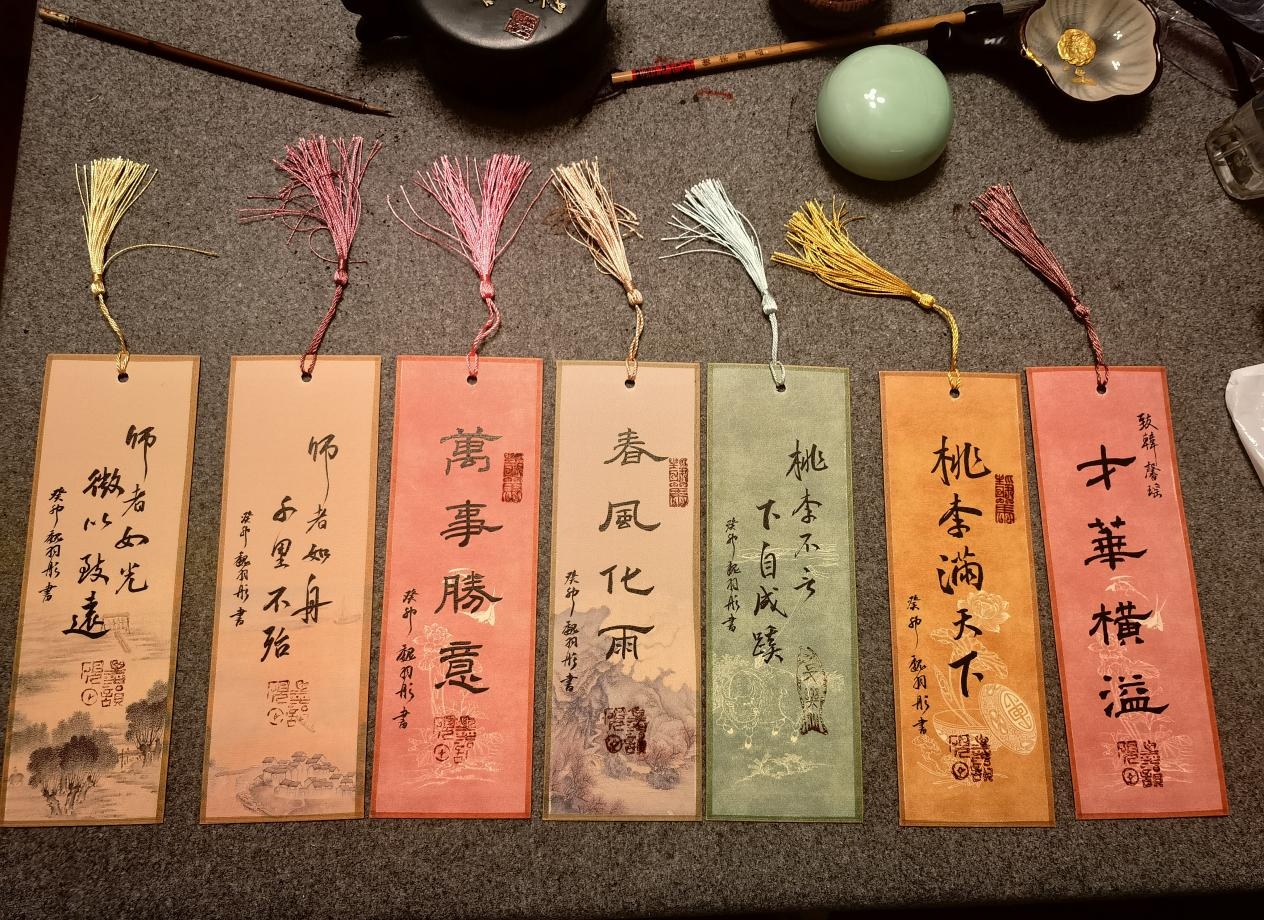 師者如光
微以致遠
癸卯魏羽彤書
師者如舟
千里不殆
癸卯魏羽彤書
萬事勝意
癸卯魏羽彤書
春風化雨
癸卯魏羽彤書
桃李不言
下自成蹊
癸卯魏羽彤書
桃李滿天下
癸卯魏羽彤書
致韓馨瑶
才華橫溢